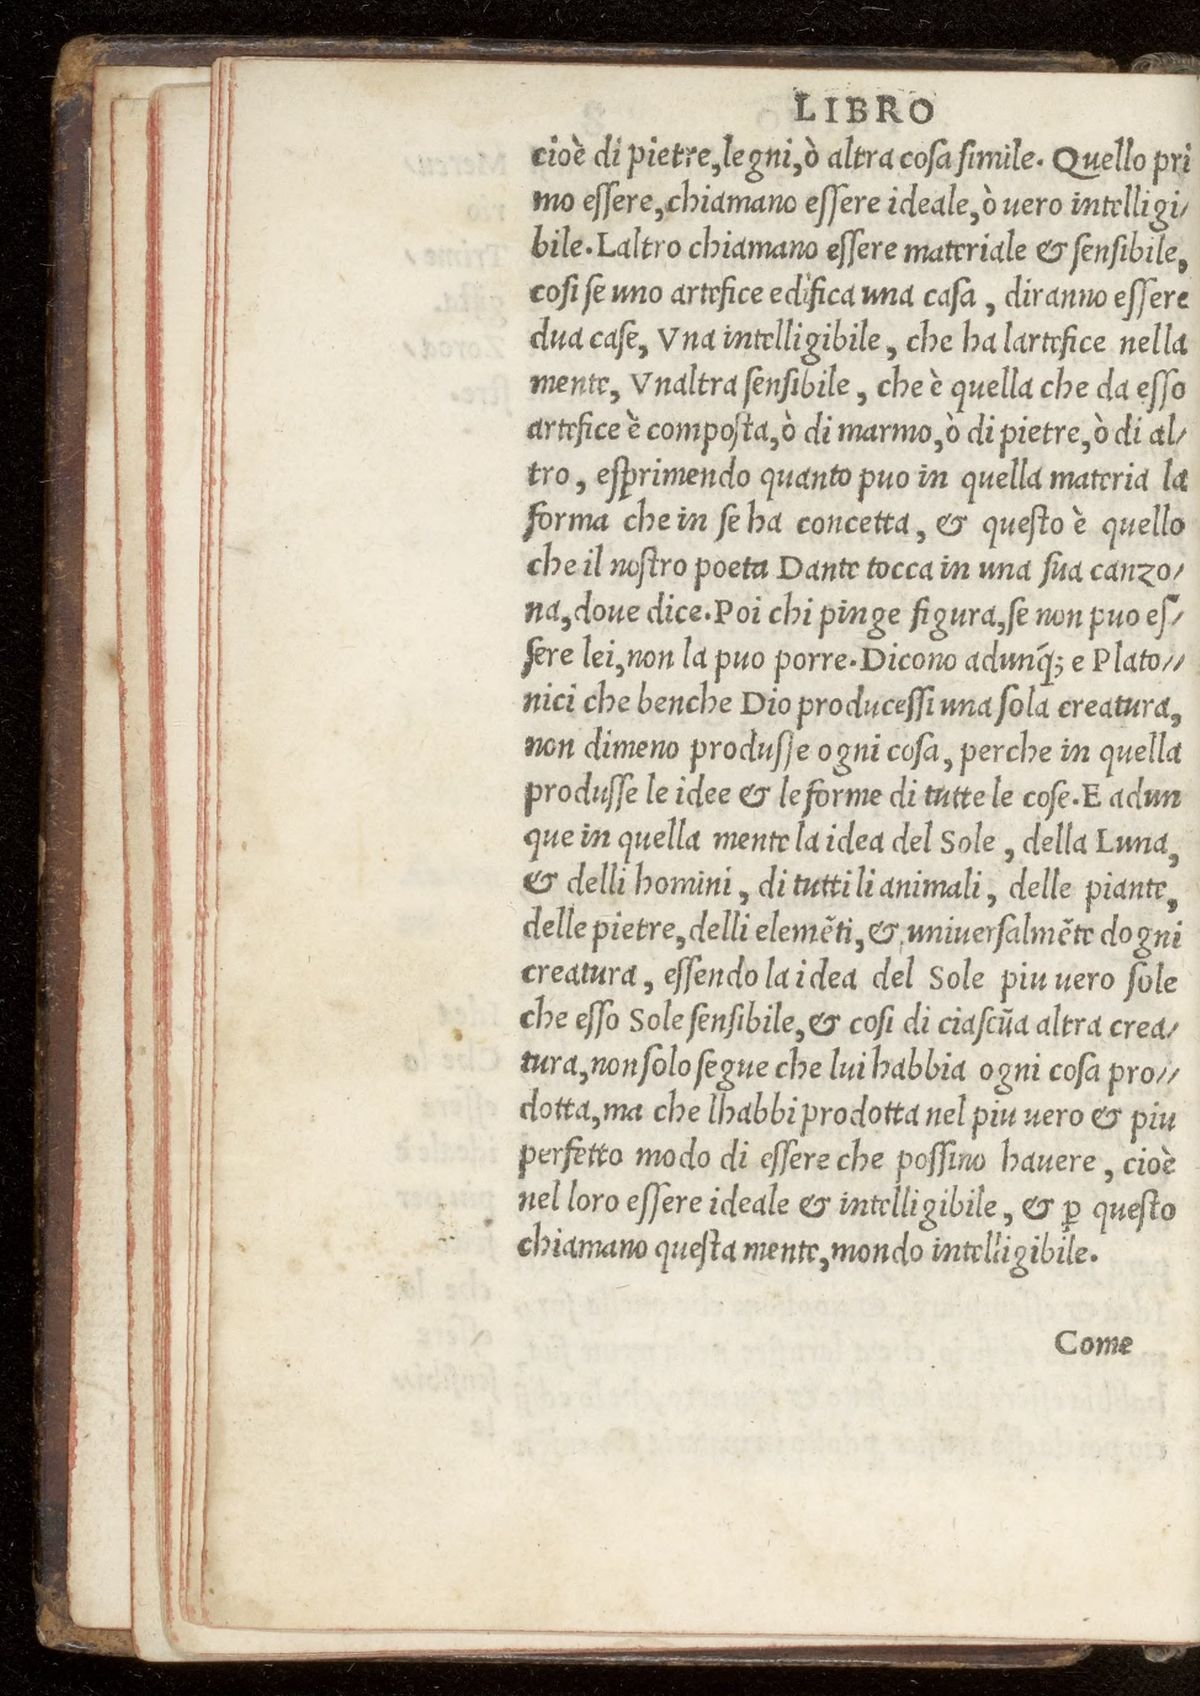 LIBRO
cioè di pietre,legni,ò altra cosa simile. Quello pri
mo essere,chiamano essere ideale,ò uero intelligi/
bile.Laltro chiamano essere materiale & sensibile,
cosi se uno artefice edifica una casa, diranno essere
dua case, Vna intelligibile, che ha lartefice nella
mente, Vnaltra sensibile, che è quella che da esso
artefice è composta,ò di marmo,ò di pietre,ò di al/
tro, esprimendo quanto puo in quella materia la
forma che in se ha concetta, & questo è quello
che il nostro poeta Dante tocca in una sua canzo/
na,doue dice.Poi chi pinge figura,se non puo es/
sere lei,non la puo porre.Dicono adunq̃; e Plato//
nici che benche Dio producessi una sola creatura,
non dimeno produsse ogni cosa, perche in quella
produsse le idee & le forme di tutte le cose.E adun
que in quella mente la idea del Sole, della Luna,
& delli homini, di tutti li animali, delle piante,
delle pietre,delli elemẽti,& uniuersalmẽte dogni
creatura, essendo la idea del Sole piu uero sole
che esso Sole sensibile,& cosi di ciascũa altra crea/
tura,non solo segue che lui habbia ogni cosa pro//
dotta,ma che lhabbi prodotta nel piu uero & piu
perfetto modo di essere che possino hauere, cioè
nel loro essere ideale & intelligibile, & ꝑ questo
chiamano questa mente,mondo intelligibile.
Come